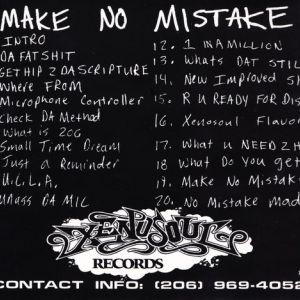 MAKE NO MISTAKE
INTRO
DA FAT SHIT
GET HIP 2 DA SCRIPTURE
Where FROM
Microphone Controller
Check DA Method
What is 20G
Small Time Dream
Just a Reminder
U.C.L.A.
UNASS DA MIC
12. 1 IN A MILLION
13. Whats DAT STIL
14. New Improved Sh
15. R U READY FOR DIS
16. Xenosoul Flavor
17. What u NEED 2 H
18 What Do you get
19. Make No Mistak
20. No Mistake mad
XENOSOUL
RECORDS
CONTACT INFO: (206) 969-4052